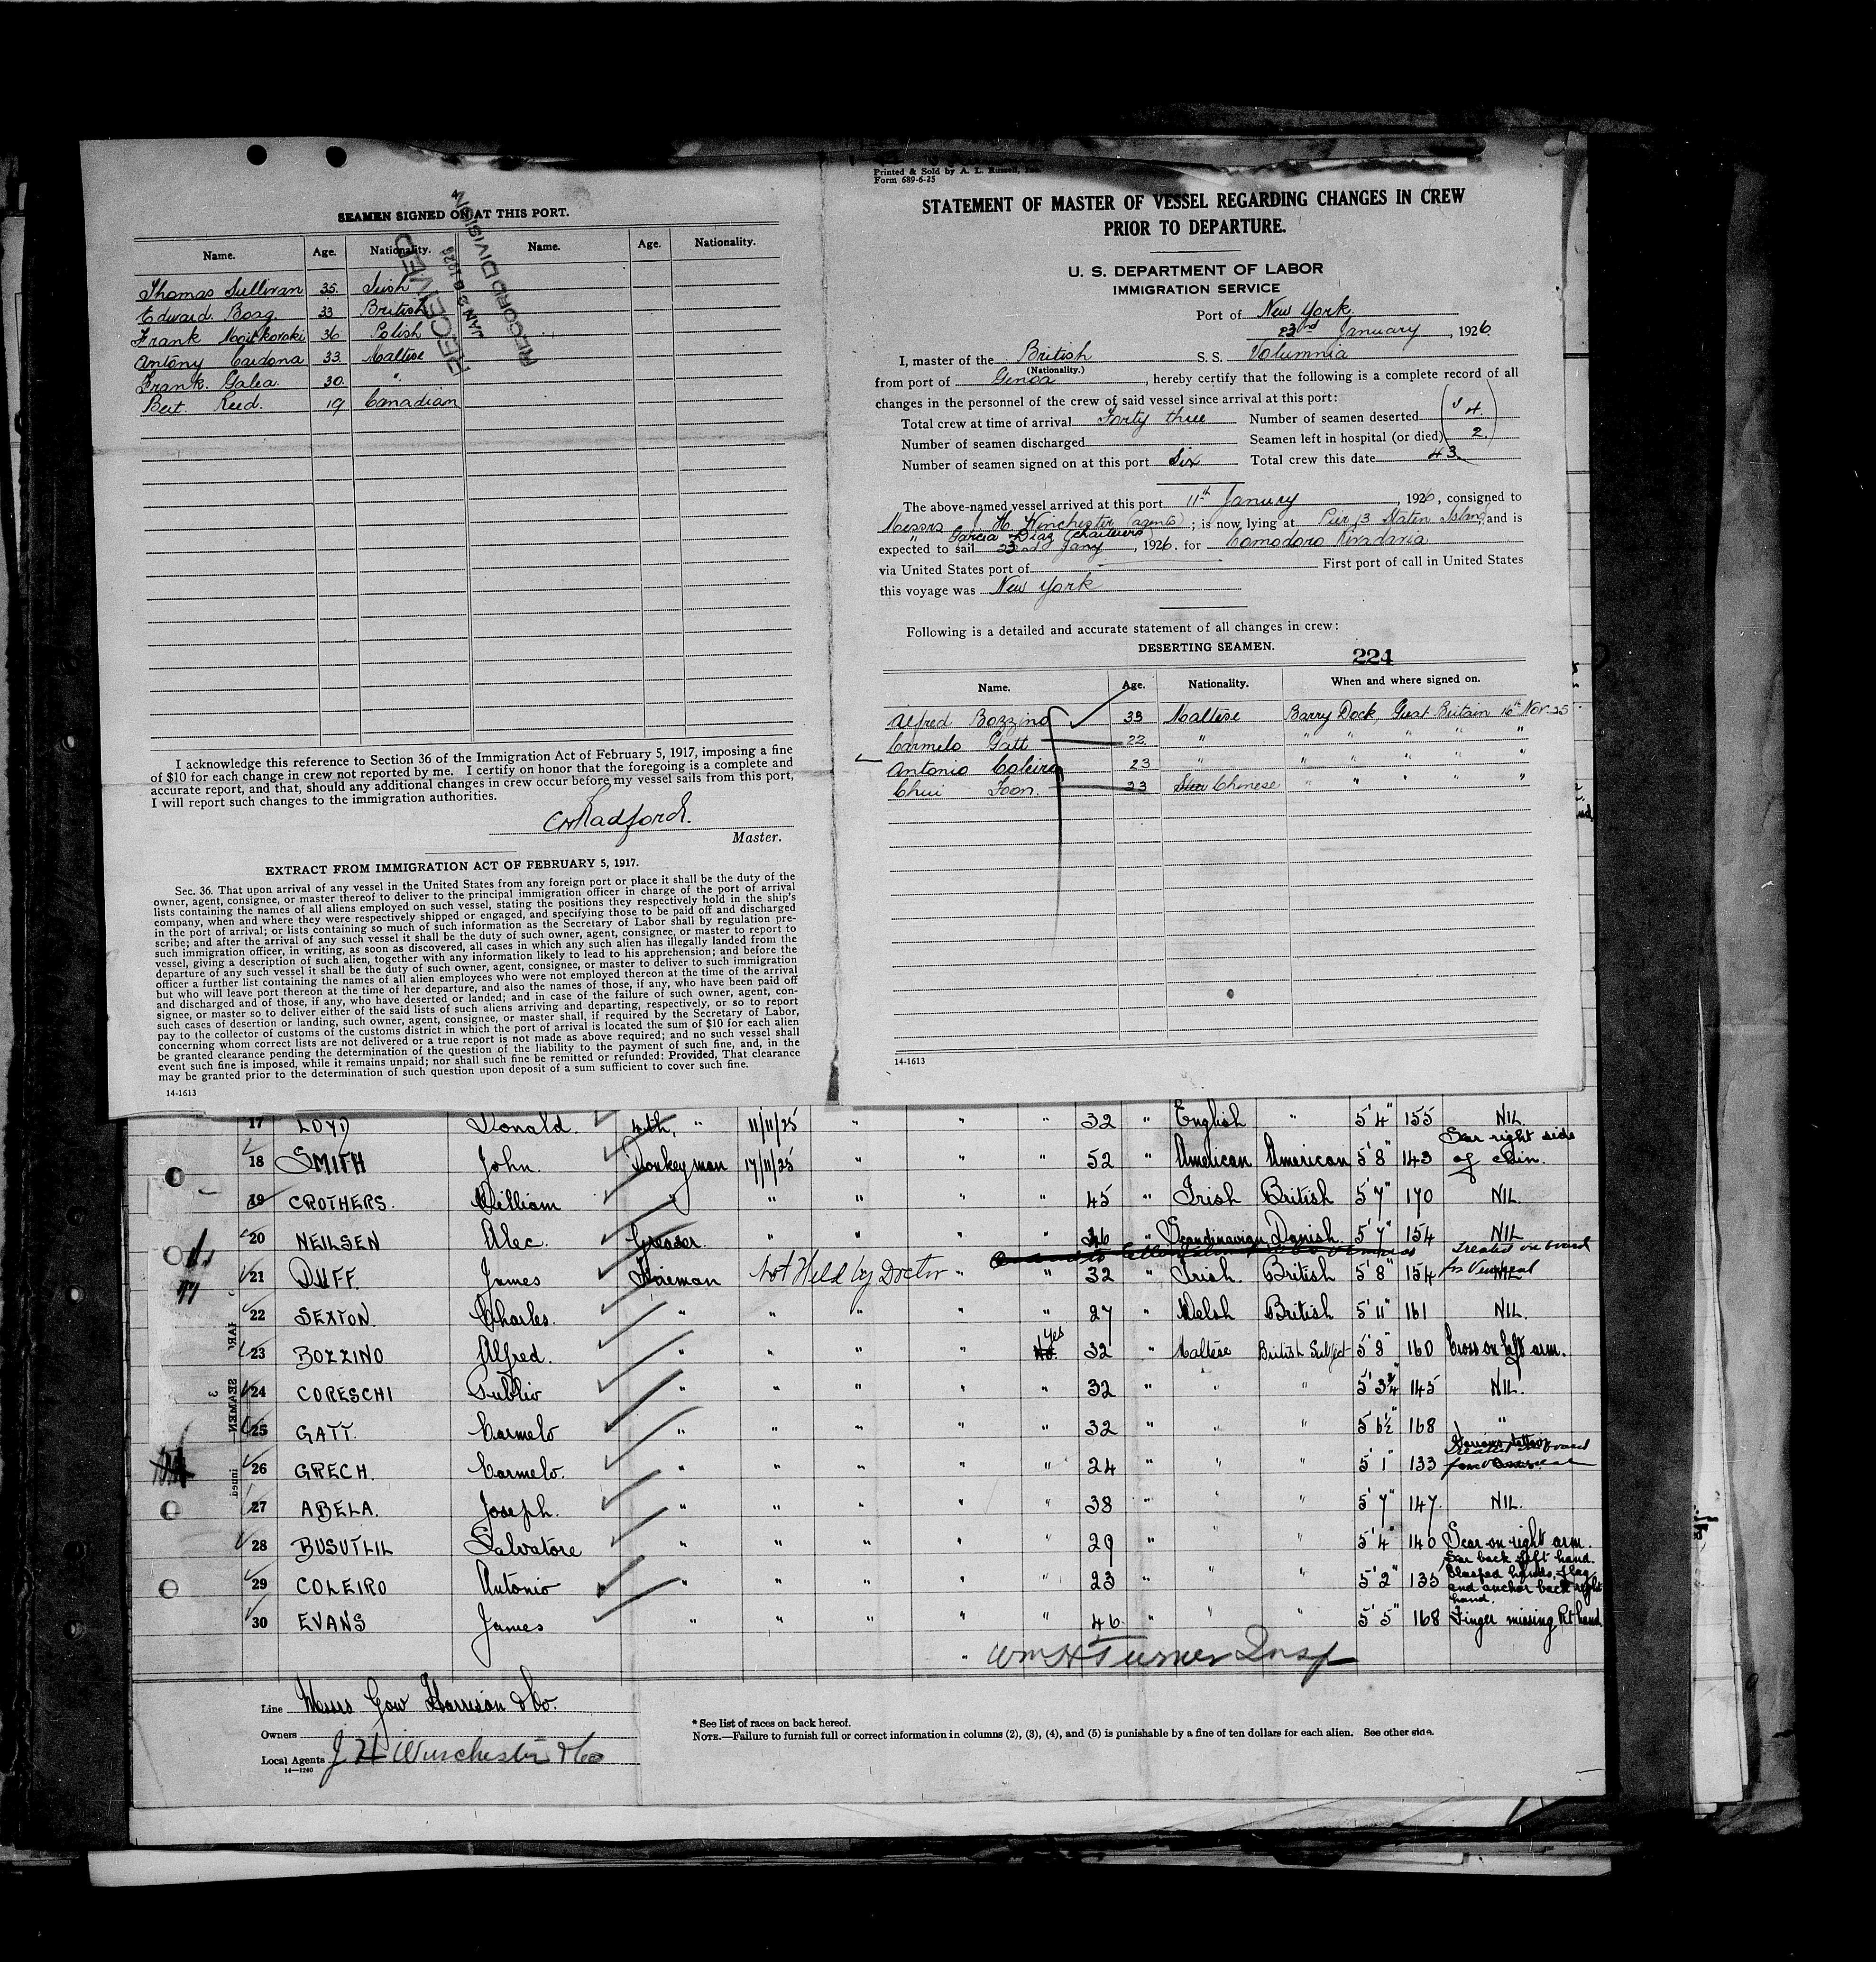 SEAMEN SIGNED ON AT THIS PORT.
Name. Age. Nationality. Name. Age. Nationality.
Thomas Sullivan 35. Irish
Edward. Boag. 33 British
Frank 36 Polish
Antony Cardona 33. Maltese
Frank. Galea. 30. "
Bert. Reed. 19 Canadian
RECEIVED
JAN 26 1926
RECORD DIVISION
I acknowledge this reference to Section 36 of the Immigration Act of February 5, 1917, imposing a fine
of $10 for each change in crew not reported by me. I certify on honor that the foregoing is a complete and
accurate report, and that, should any additional changes in crew occur before my vessel sails from this port,
I will report such changes to the immigration authorities.
Radford.
Master.
EXTRACT FROM IMMIGRATION ACT OF FEBRUARY 5, 1917.
Sec. 36. That upon arrival of any vessel in the United States from any foreign port or place it shall be the duty of the
owner, agent, consignee, or master thereof to deliver to the principal immigration officer in charge of the port of arrival
lists containing the names of all aliens employed on such vessel, stating the positions they respectively hold in the ship's
company, when and where they were respectively shipped or engaged, and specifying those to be paid off and discharged
in the port of arrival; or lists containing so much of such information as the Secretary of Labor shall by regulation pre-
scribe; and after the arrival of any such vessel it shall be the duty of such owner, agent, consignee, or master to report to
such immigration officer, in writing, as soon as discovered, all cases in which any such alien has illegally landed from the
vessel, giving a description of such alien, together with any information likely to lead to his apprehension; and before the
departure of any such vessel it shall be the duty of such owner, agent, consignee, or master to deliver to such immigration
officer a further list containing the names of all alien employees who were not employed thereon at the time of the arrival
but who will leave port thereon at the time of her departure, and also the names of those, if any, who have been paid off
and discharged and of those, if any, who have deserted or landed; and in case of the failure of such owner, agent, con-
signee, or master so to deliver either of the said lists of such aliens arriving and departing, respectively, or so to report
such cases of desertion or landing, such owner, agent, consignee, or master shall, if required by the Secretary of Labor,
pay to the collector of customs of the customs district in which the port of arrival is located the sum of $10 for each alien
concerning whom correct lists are not delivered or a true report is not made as above required; and no such vessel shall
be granted clearance pending the determination of the question of the liability to the payment of such fine, and, in the
event such fine is imposed, while it remains unpaid; nor shall such fine be remitted or refunded: Provided, That clearance
may be granted prior to the determination of such question upon deposit of a sum sufficient to cover such fine.
14-1613
Printed & Sold by A. L. Russell, Inc.
Form 689-6-25
STATEMENT OF MASTER OF VESSEL REGARDING CHANGES IN CREW
PRIOR TO DEPARTURE.
U. S. DEPARTMENT OF LABOR
IMMIGRATION SERVICE
Port of New York.
23rd January, 1926.
I, master of the British S. S. Volumnia
(Nationality.)
from port of Genoa, hereby certify that the following is a complete record of all
changes in the personnel of the crew of said vessel since arrival at this port:
Total crew at time of arrival Forty three Number of seamen deserted 4.
Number of seamen discharged Seamen left in hospital (or died) 2.
Number of seamen signed on at this port Six Total crew this date 43.
The above-named vessel arrived at this port 11th Janury, 1926, consigned to
Messrs J. H. Winchester (agents); is now lying at Pier 13 Staten Island, and is
" Garcia & Diaz (charterers)
expected to sail 23rd Jany, 1926. for Comodoro Rivadavia
via United States port of - First port of call in United States
this voyage was New York
Following is a detailed and accurate statement of all changes in crew:
DESERTING SEAMEN.
224
Name. Age. Nationality. When and where signed on.
Alfred Bozzino 33 Maltese Barry Dock, Great Britain 16th Nov. 25
Carmelo Gatt 22. " " " " " "
Antonio Coleiro 23 " " " " " "
Chui Foon. 23 Chinese " " " " "
14-1613
17 LOYD Donald. 4th, " 11/11/25 " " " 32 " English " 5'4" 155 NIL.
18 SMITH John. Donkeyman 17/11/25 " " " 52 " American American 5'8" 143 Scar right side of chin.
19 CROTHERS. William " " " " " 45 " Irish British 5'7" 170 NIL.
20 NEILSEN Alec. Greaser. " " " " 36 " Scandinavian Danish. 5'7" 154 NIL
21 DUFF. James Fireman Not Held by Doctor " " 32 " Irish. British 5'8" 154 NIL Treated on board for Venereal
22 SEXTON. Charles. " " " " " 27 " Welsh British 5'11" 161 NIL.
23 BOZZINO Alfred. " " " " No. Yes 32 " Maltese British Subject 5'8" 160 Cross on left arm.
24 CORESCHI Publio " " " " " 32 " " " 5'3¾" 145 NIL.
25 GATT. Carmelo " " " " " 32 " " " 5'6½" 168 "
26 GRECH. Carmelo. " " " " " 24 " " " 5'1" 133 Treated on board for Venereal
27 ABELA. Joseph. " " " " " 38 " " " 5'7" 147. NIL.
28 BUSUTLIL Salvatore " " " " " 29 " " " 5'4" 140 Scar on right arm.
29 COLEIRO Antonio " " " " " 23 " " " 5'2" 135 Scar back left hand. Clasped hands, flag and anchor back right hand.
30 EVANS James " " " " " 46 " " " 5'5" 168 Finger missing Rt hand.
Wm H Turner Insp
Line Messrs Gow Harrison & Co.
Owners
Local Agents J H Winchester & Co
14-1240
* See list of races on back hereof.
NOTE.—Failure to furnish full or correct information in columns (2), (3), (4), and (5) is punishable by a fine of ten dollars for each alien. See other side.